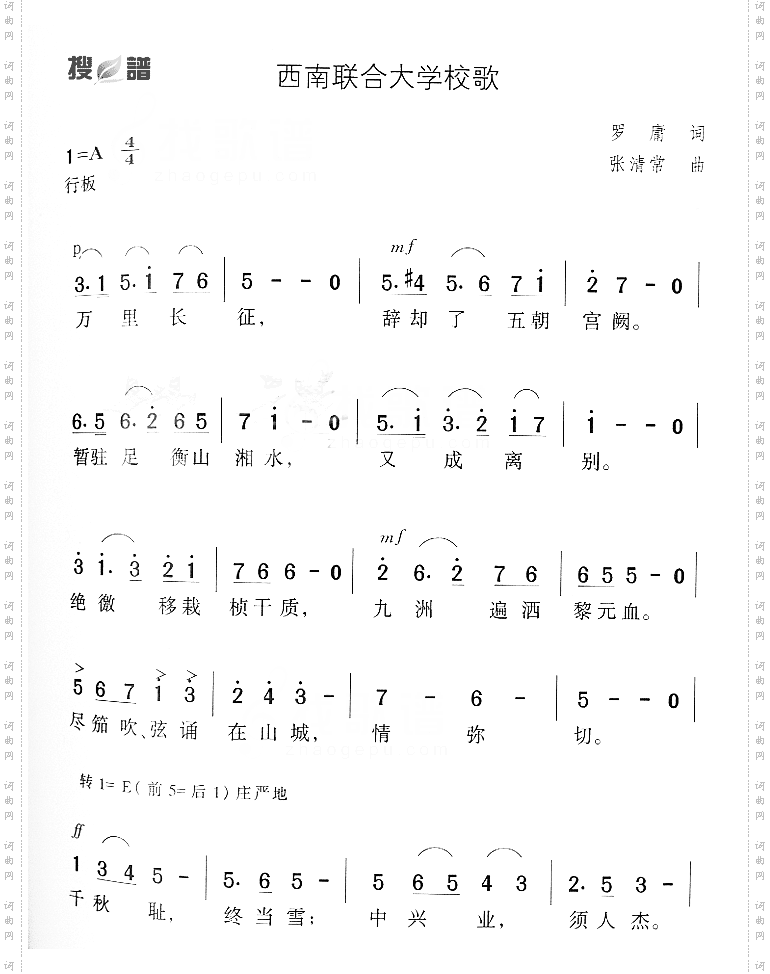 搜 譜
西南联合大学校歌
罗庸 词
1=A 4/4
张清常 曲
行板
p mf
3·1 5·1 7 6 | 5 - - 0 | 5·#4 5·6 7 1 | 2 7 - 0 |
万里长征， 辞却了五朝宫阙。
6·5 6·2 6 5 | 7 1 - 0 | 5·1 3·2 1 7 | 1 - - 0 |
暂驻足衡山湘水， 又成离别。
mf
3 1·3 2 1 | 7 6 6 - 0 | 2 6·2 7 6 | 6 5 5 - 0 |
绝徼移栽桢干质， 九洲遍洒黎元血。
5 6 7 1 3 | 2 4 3 - | 7 - 6 - | 5 - - 0 |
尽笳吹、弦诵在山城， 情弥切。
转1=E（前5=后1）庄严地
ff
1 3 4 5 - | 5· 6 5 - | 5 6 5 4 3 | 2· 5 3 - |
千秋耻， 终当雪； 中兴业， 须人杰。